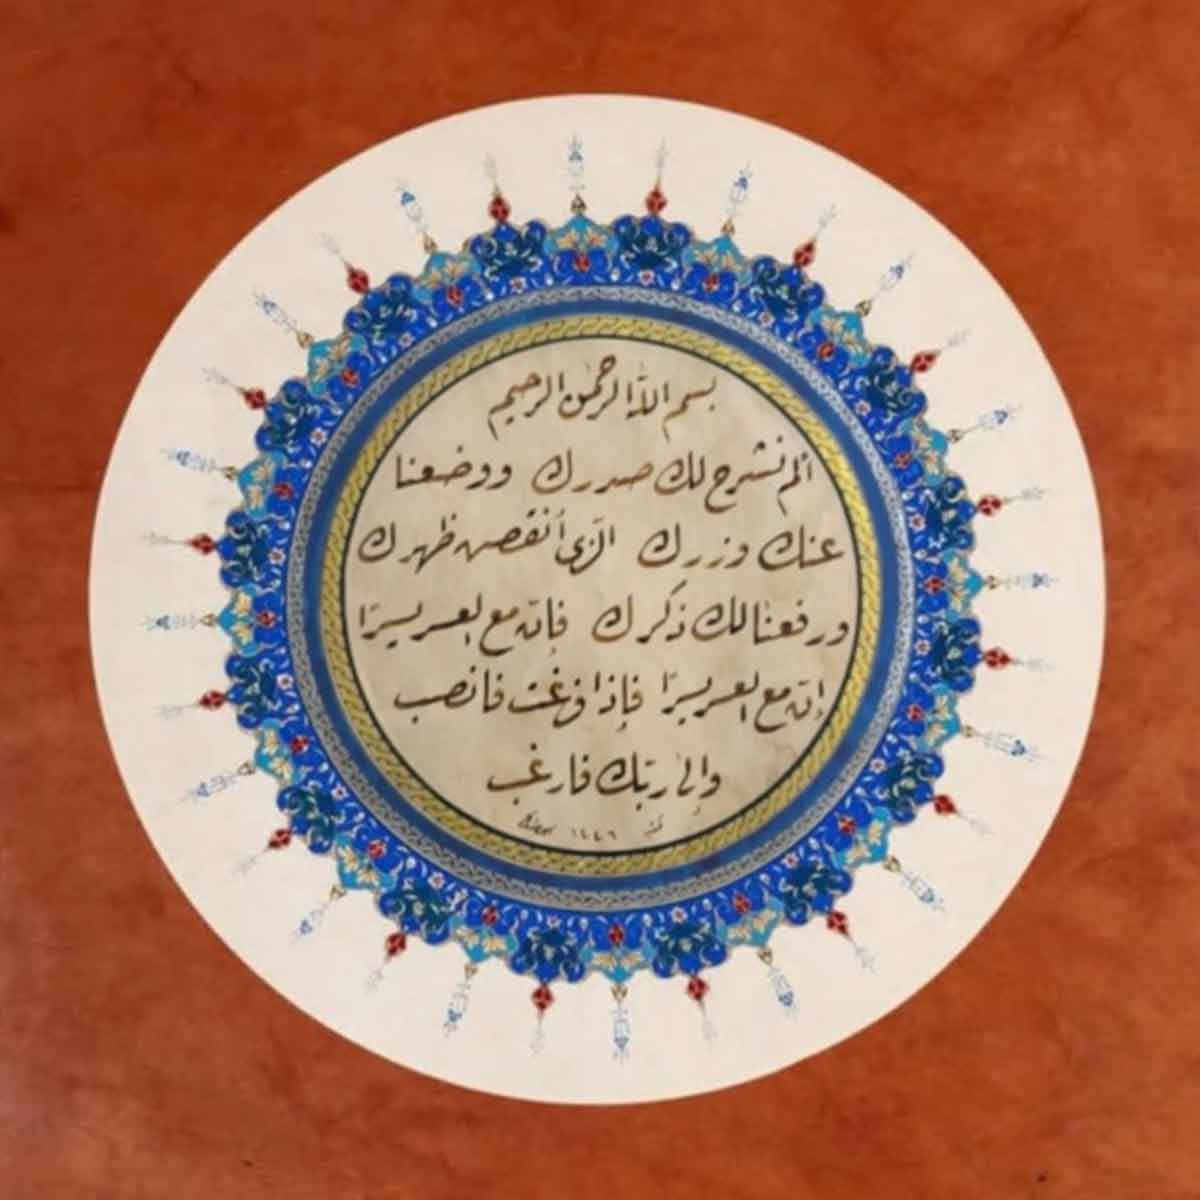 بسم الله الرحمن الرحيم
ألم نشرح لك صدرك ووضعنا
عنك وزرك الذي أنقض ظهرك
ورفعنا لك ذكرك فإنّ مع العسر يسرًا
إنّ مع العسر يسرًا فإذا فرغت فانصب
وإلى ربّك فارغب
١٤٤٦